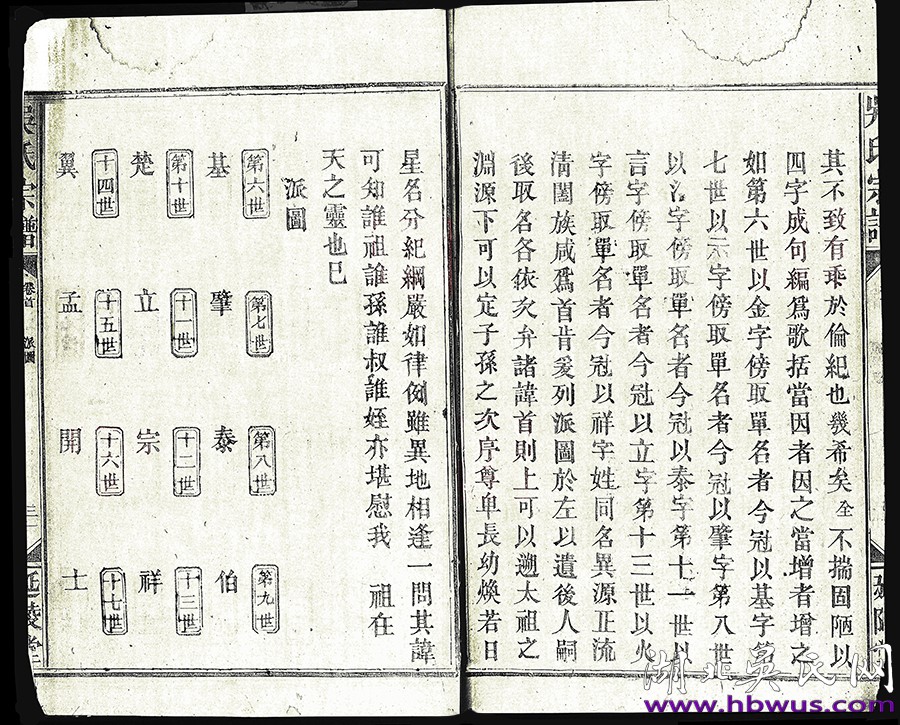 其不致有乖於倫紀也幾希矣 仝 不揣固陋以
四字成句編爲歌括當因者因之當增者增之
如第六世以金字傍取單名者今冠以基字第
七世以示字傍取單名者今冠以肇字第八世
以氵字傍取單名者今冠以泰字第十一世以
言字傍取單名者今冠以立字第十三世以火
字傍取單名者今冠以祥字姓同名異源正流
淸闔族咸爲首肯爰列派圖於左以遺後人嗣
後取名各依次弁諸諱首則上可以遡太祖之
淵源下可以定子孫之次序尊卑長幼煥若日
星名分紀綱嚴如律例雖異地相逢一問其諱
可知誰祖誰孫誰叔誰姪亦堪慰我 祖在
天之靈也已
派圖
第六世 基 第七世 肇 第八世 泰 第九世 伯
第十世 楚 十一世 立 十二世 宗 十三世 祥
十四世 翼 十五世 孟 十六世 開 十七世 士
吳氏宗譜 卷首 派圖 延陵堂
吳氏宗譜 延陵堂
湖北吴氏网
www.hbwus.com